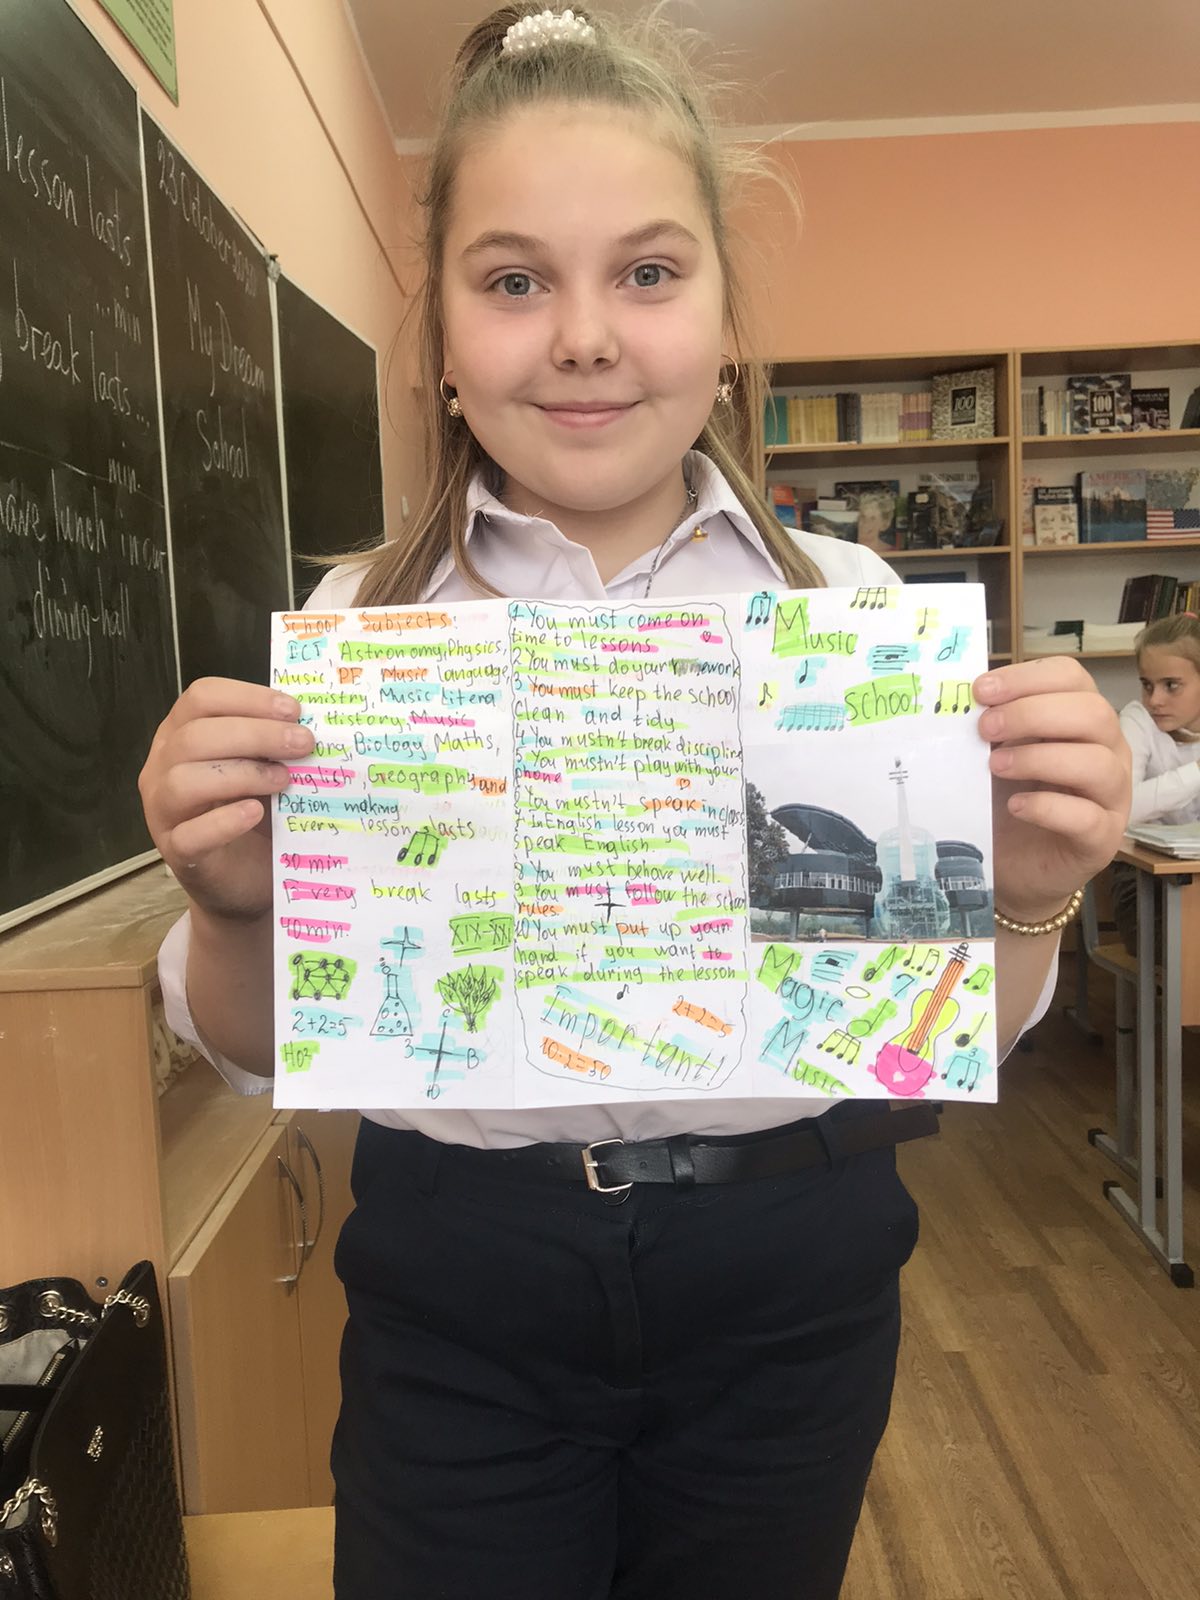 lesson lasts
... min
break lasts ...
min.
have lunch in our
dining-hall
23 October
My Dream
School
School Subjects:
ICT, Astronomy, Physics,
Music, PE, Music language
Music Litera
History, Music
Biology, Maths,
English, Geography and
Potion making
Every lesson lasts
30 min
Every break lasts
40 min.
XIX-XXI
2+2=5
Ho²
С
З В
Ю
1 You must come on
time to lessons
2 You must do your homework
3 You must keep the school
clean and tidy
4 You mustn't break discipline
5 You mustn't play with your
phone
6 You mustn't speak in class
7 In English lesson you must
speak English.
8 You must behave well.
9 You must follow the school
rules.
10 You must put up your
hand if you want to
speak during the lesson
Important!
2+2=5
10-2=30
Music
School
Magic
Music
100
100
AMERICA